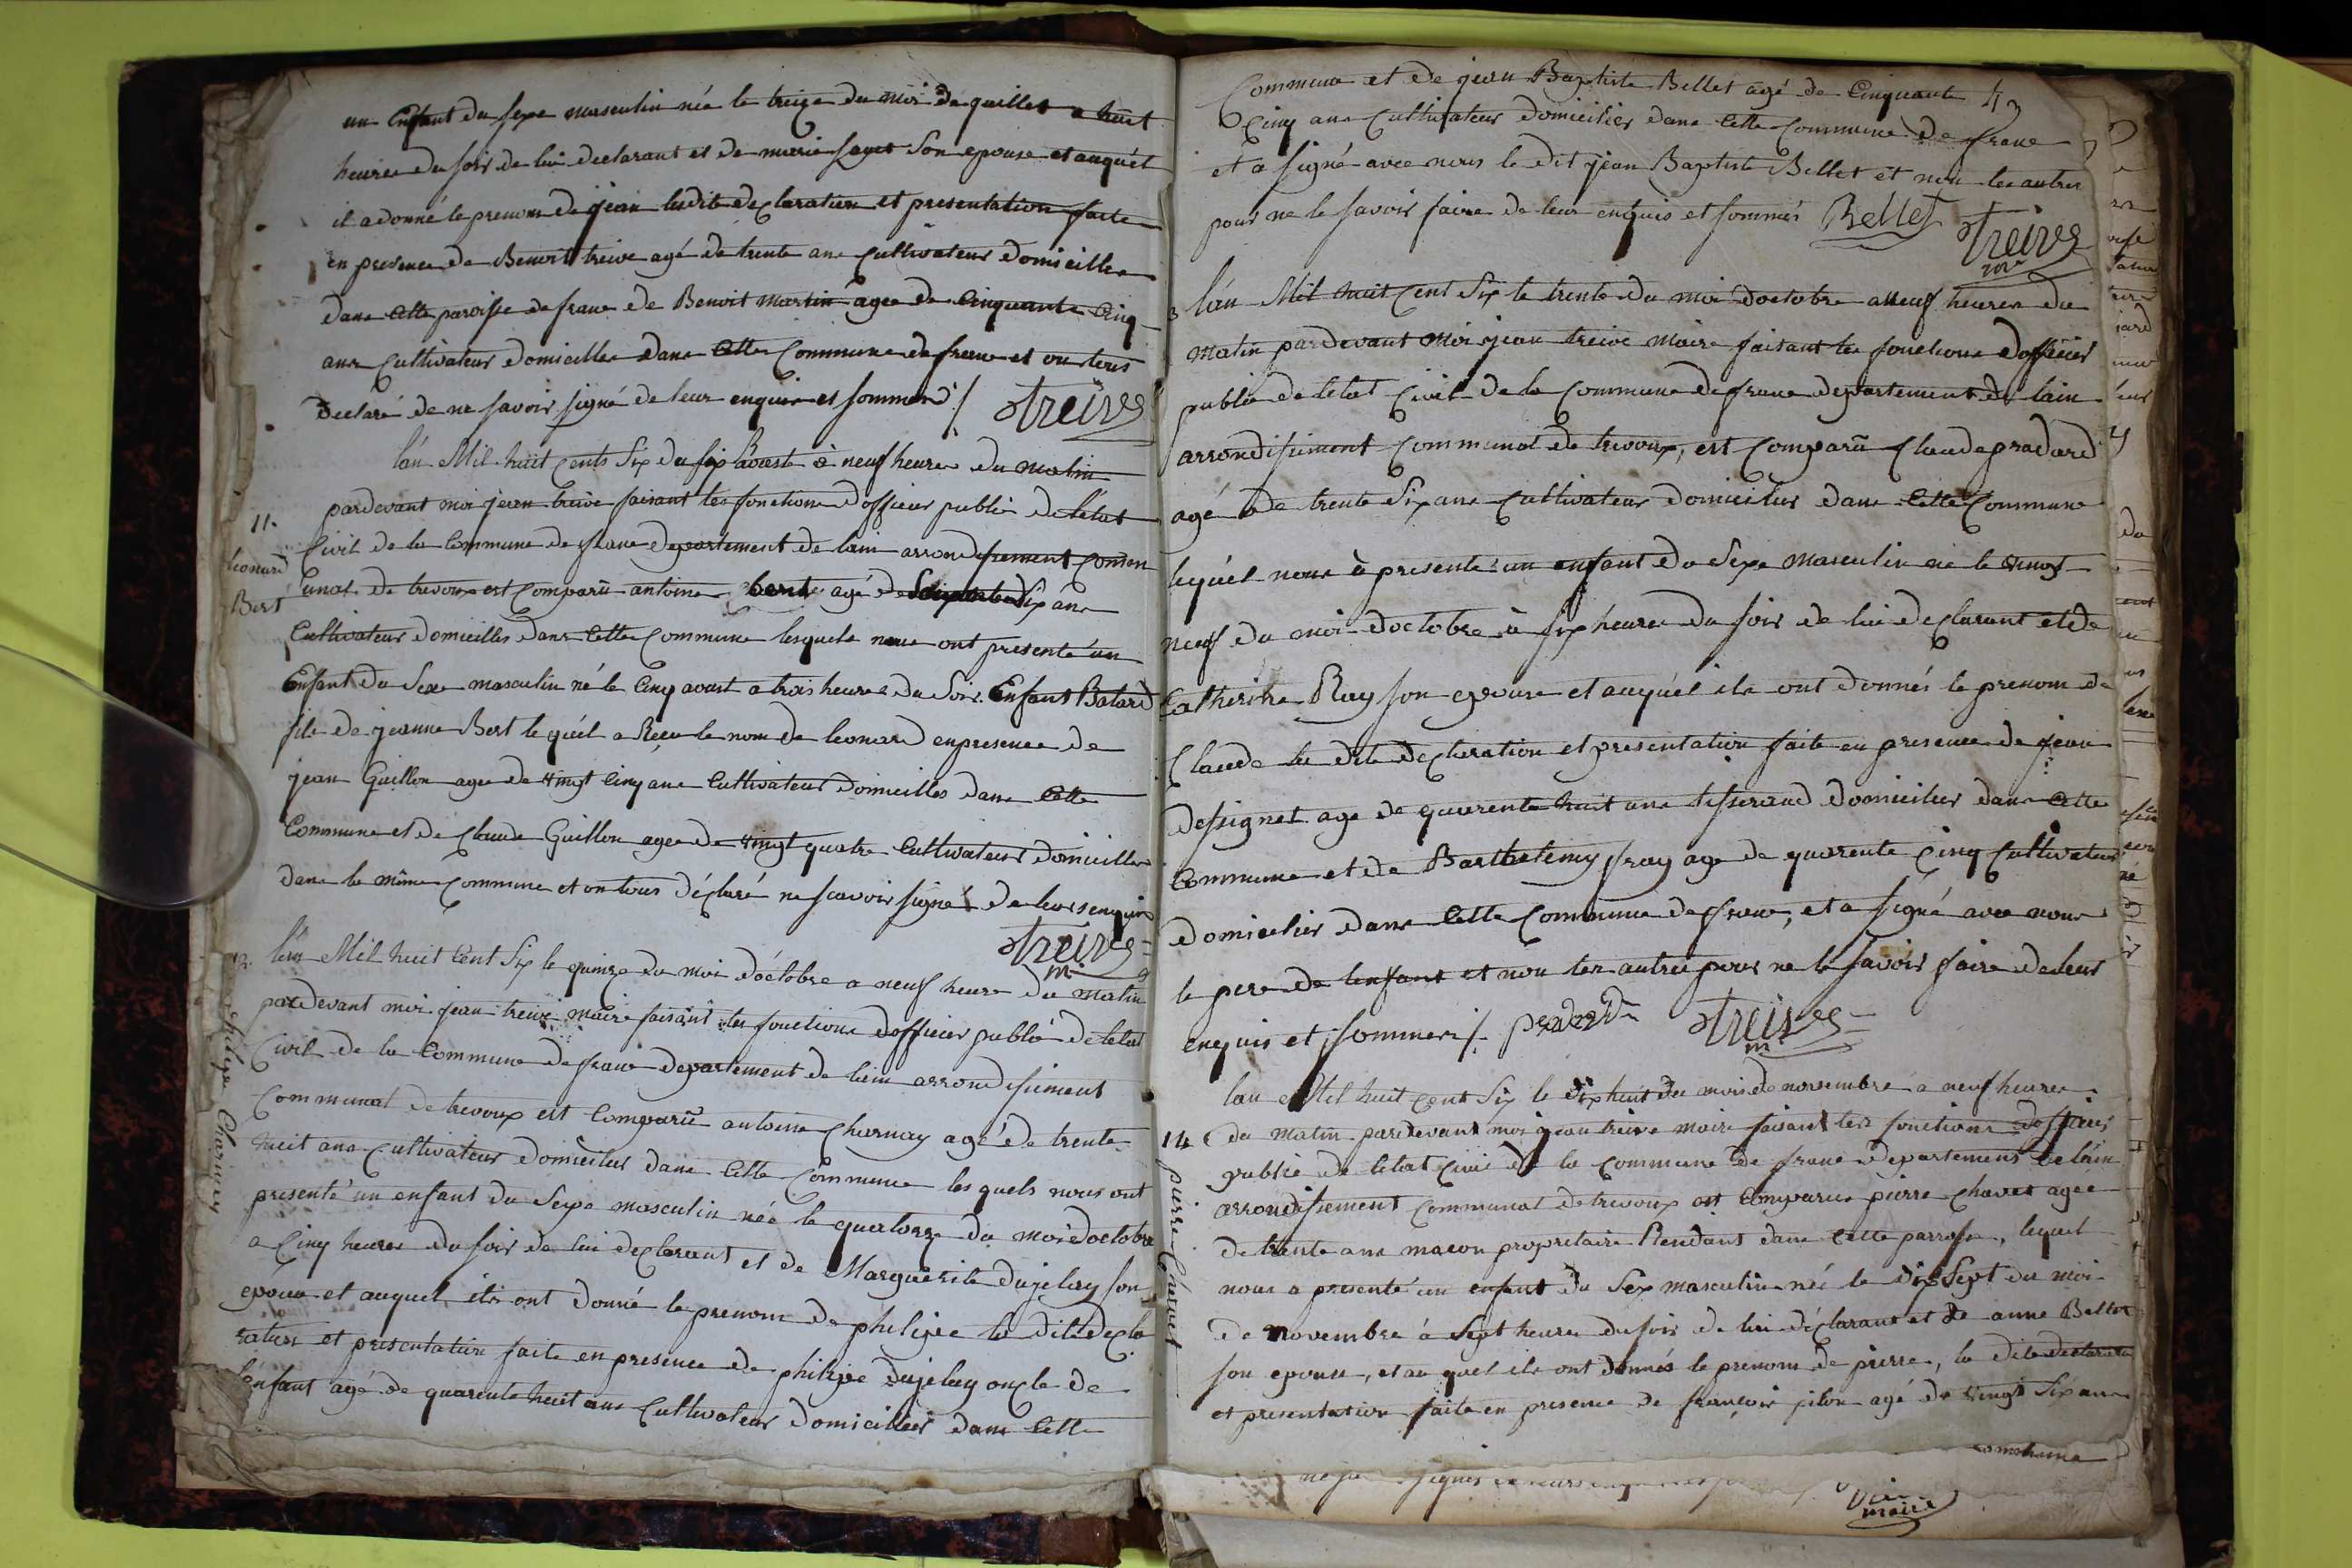 un Enfant du sexe masculin née le treize du moi de juillet a huit
heures du soir de lui declarant et de marie sayet son epouse et auquel
il a donné le prenom de jean ladite declaration et presentation faite
en presence de Benoit treive agé de trente ans cultivateur domicillée
dans cette paroisse de frans de Benoit martin agée de cinquante cinq
ans cultivateur domicillée dans cette commune de frans et on tous
declaré de ne savoir signé de leur enquis et sommés ./. Treive
l'an Mil huit cents six du six aoust à neuf heures du matin
pardevant moi jean treive faisant les fonctions d'officier public de l'etat
11.
Civil de la commune de frans departement de lain arrondissement commu
Léonard
unal de trevoux est comparû antoine bert agé de six ans
Bert
Cultivateur domicilles dans cette commune lesquels nous ont presenté un
Enfant du sexe masculin né le cinq aoust a trois heures du soir. Enfant Batard
fils de jeanne Bert lequel a Reçu le nom de leonard en presence de
jean Guillon agée de vingt cinq ans cultivateur domicilles dans cette
commune et de claude Guillon agée de vingt quatre cultivateur domicillée
dans la même commune et on tous déclaré ne scavoir signé de leurs enquis
Treive
m.
12. l'an Mil huit cent six le quinze du moi d'octobre a neuf heure du matin
pardevant moi jean treive maire faisant les fonctions d'officier public de letat
Civil de la commune de frans departement de lain arrondissement
communal de trevoux est comparû antoine charnay agé de trente
huit ans cultivateur domicilier dans cette commune les quels nous ont
philipe Charnay
presenté un enfant du sexe masculin née le quatorze du moi doctobre
a cinq heures du soir de lui declarant et de Marguerite Dujelay son
epouse et auquel ils ont donné le prenom de philipe la dite decla
ration et presentation faite en presence de philipe Dujelay oncle de
l'enfant agé de quarente huit ans cultivateur domicilier dans cette
Commune et de jean Baptiste Bellet agé de cinquante
cinq ans cultivateur domicilier dans cette commune de frans
et a signé avec nous le dit jean Baptiste Bellet et non les autres
pour ne le savoir faire de leur enquis et sommés Bellet Treive
mre
3 l'an Mil huit cent six le trente du moi d'octobre a neuf heures du
matin pardevant moi jean treive maire faisant les fonctions d'officier
public de letat civil de la commune de frans departement de lain
arrondissement communal de trevoux, est comparû claude pradard
agé de trente six ans cultivateur domicilier dans cette commune
lequel nous à presenté un enfant du sexe masculin né le vingt
neuf du moi d'octobre à six heures du soir de lui declarant et de
Catherine Ray son epouse et auquel ils ont donnés le prenom de
Claude la dite declaration et presentation faite en presence de jean
dessignet age de quarente huit ans tisserand domicilier dans cette
commune et de Barthelemy fray age de quarente cinq cultivateur
domicilier dans cette commune de frans, et a signé avec nous
le pere de l'enfant et non les autres pour ne le savoir faire de leur
enquis et sommés ./. Treive
m.
lan Mil huit cent six le dix huit du mois de novembre a neuf heures
14 du matin pardevant moi jean treive maire faisant les fonctions d'officier
public de letat civil de la commune de frans departement de lain
arrondissement communal de trevoux est comparu pierre chavet agée
pierre Chavet
de trente ans maçon propretaire Residant dans cette parroisse, lequel
nous a presenté un enfant du sexe masculin née le dix sept du moi
de Novembre à sept heures du soir de lui declarant et de anne Bellet
son epouse, et au quel ils ont donnés le prenom de pierre, la dite declaration
et presentation faite en presence de françois pilon agé de vingt six ans
commune
maire